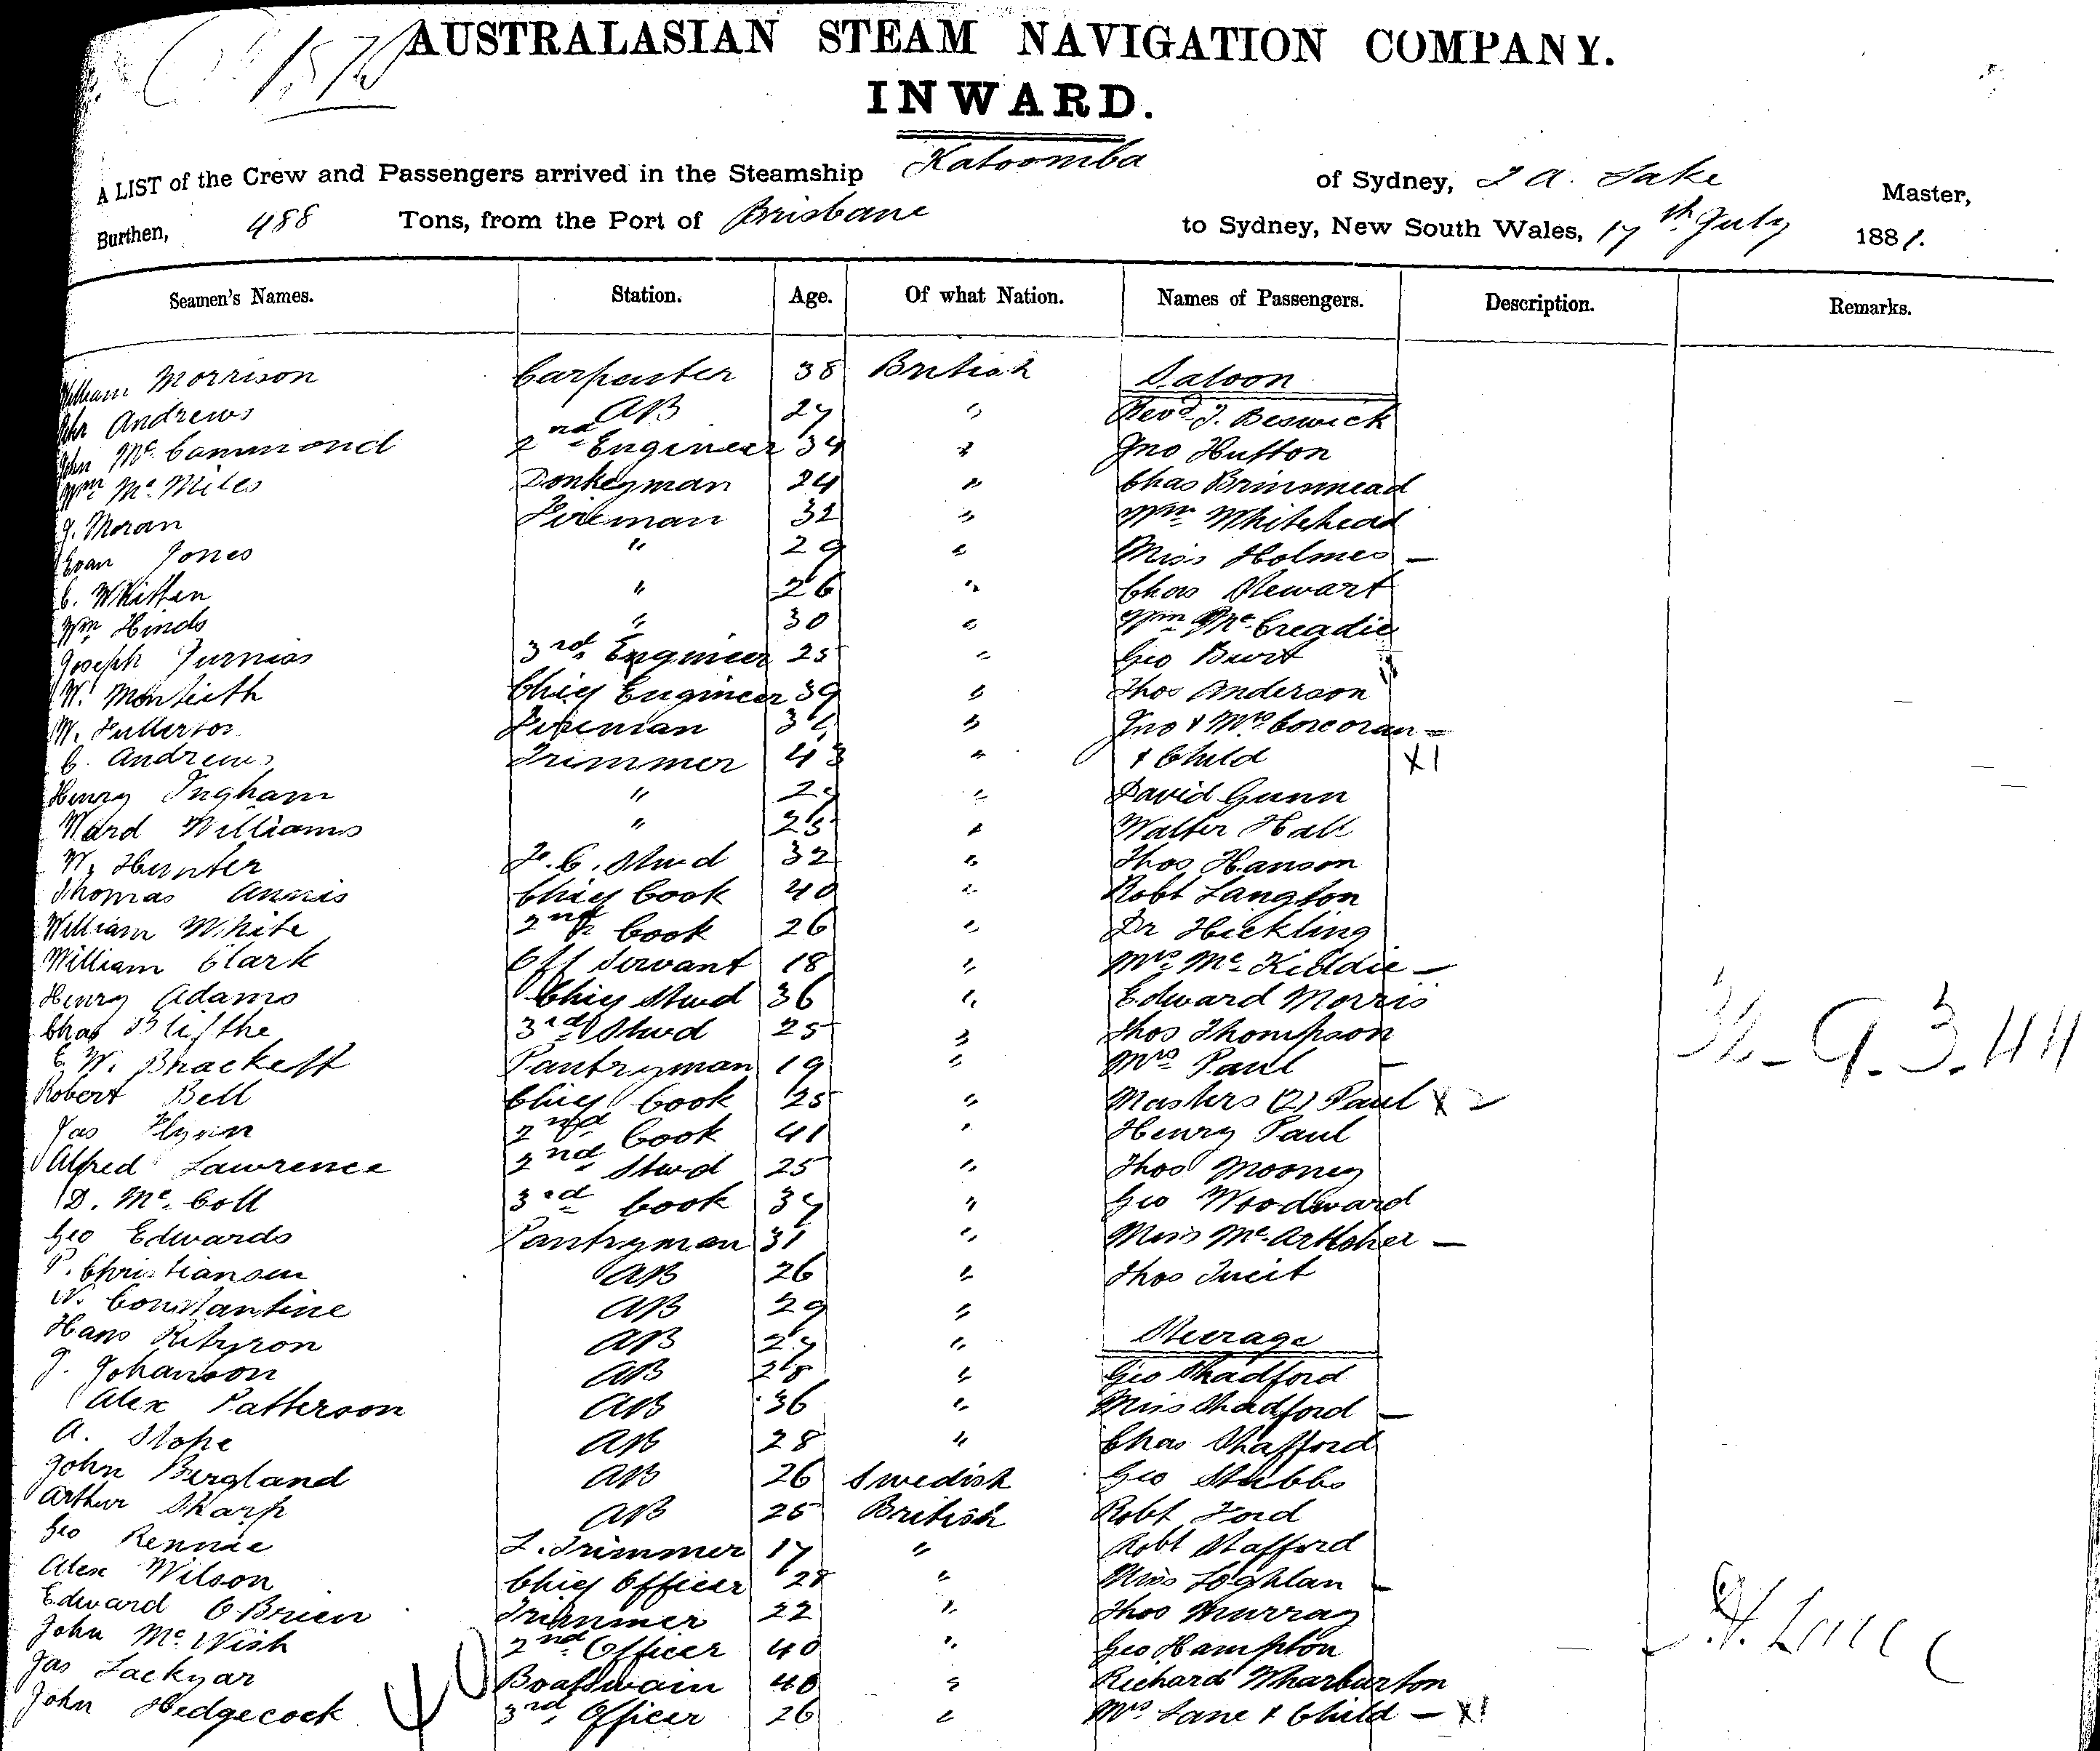 AUSTRALASIAN STEAM NAVIGATION COMPANY.
INWARD.
A LIST of the Crew and Passengers arrived in the Steamship Katoomba of Sydney, Lake Master,
Burthen, 488 Tons, from the Port of Brisbane to Sydney, New South Wales, 17th July 1881.
Seamen's Names. Station. Age. Of what Nation. Names of Passengers. Description. Remarks.
William Morrison Carpenter 38 British Saloon
John Andrews AB 27 " Revd J. Beswick
John Mc Cammond 2nd Engineer 34 " Jno Hutton
Wm Mc Miles Donkeyman 24 " Chas Brinsmead
J. Moran Fireman 32 " Wm Whitehead
Evan Jones " 29 " Miss Holmes —
C. Whitten " 26 " Chas Stewart
Wm Hinds " 30 " Wm Mc Creadie
Joseph Furnias 3rd Engineer 25 " Geo Burt
W. Montieth Chief Engineer 39 " Thos Anderson
W. Fullerton Fireman " Jno & Mrs Corcoran —
C. Andrews Trimmer 43 " & Child X1
Henry Ingham " " David Gunn
Ward Williams " 25 " Walter Hall
W. Hunter F. C. Stwd 32 " Thos Hanson
Thomas Annis Chief Cook 40 " Robt Langton
William White 2nd Cook 26 " Dr Hickling
William Clark Off Servant 18 " Mrs Mc Kiddie —
Henry Adams Chief Stwd 36 " Edward Morris
Chas Blifthe 3rd Stwd 25 " Thos Thompson
E. W. Brackett Pantryman 19 " Mrs Paul —
Robert Bell Chief Cook 25 " Masters (2) Paul X 2
Jas Flynn 2nd Cook 41 " Henry Paul
Alfred Lawrence 2nd Stwd 25 " Thos Mooney
D. Mc Coll 3rd Cook 37 " Geo Woodward
Geo Edwards Pantryman 31 " Miss Mc Arthoher —
P. Christiansen AB 26 " Thos
N. Constantine AB 29 "
Hans AB 27 " Steerage
J. Johanson AB 28 " Geo Shadford
Alex Patterson AB 36 " Miss Shadford —
A. Slope AB 28 " Chas Stafford
John Bergland AB 26 Swedish Geo Stubbs
Arthur Sharp AB 25 British Robt Ford
Geo Rennie L. Trimmer 17 " Robt Stafford
Alex Wilson Chief Officer 28 " Miss Loghlan —
Edward O'Brien Trimmer 22 " Thos Murray
John Mc Wish 2nd Officer 40 " Geo Hampton
Jas Lackyar Boatswain 40 " Richard Wharburton
John Hedgecock 3rd Officer 26 " Mrs Lane & Child — X1